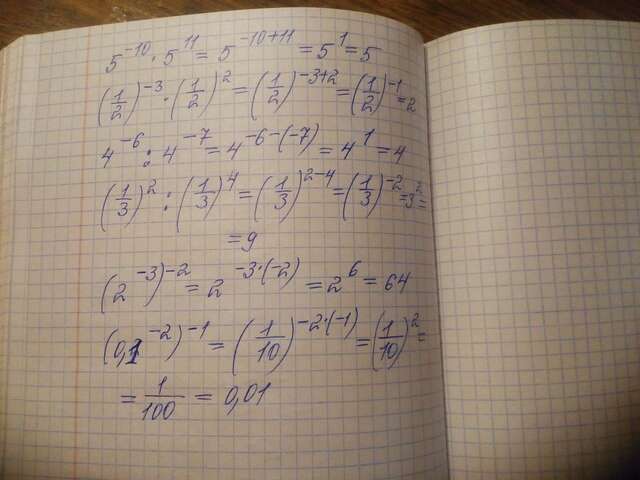 5⁻¹⁰ · 5¹¹ = 5⁻¹⁰⁺¹¹ = 5¹ = 5
(1/2)⁻³ · (1/2)² = (1/2)⁻³⁺² = (1/2)⁻¹ = 2
4⁻⁶ : 4⁻⁷ = 4⁻⁶⁻⁽⁻⁷⁾ = 4¹ = 4
(1/3)² : (1/3)⁴ = (1/3)²⁻⁴ = (1/3)⁻² = 3² =
= 9
(2⁻³)⁻² = 2^(-3·(-2)) = 2⁶ = 64
(0,1⁻²)⁻¹ = (1/10)^(-2·(-1)) = (1/10)² =
= 1/100 = 0,01